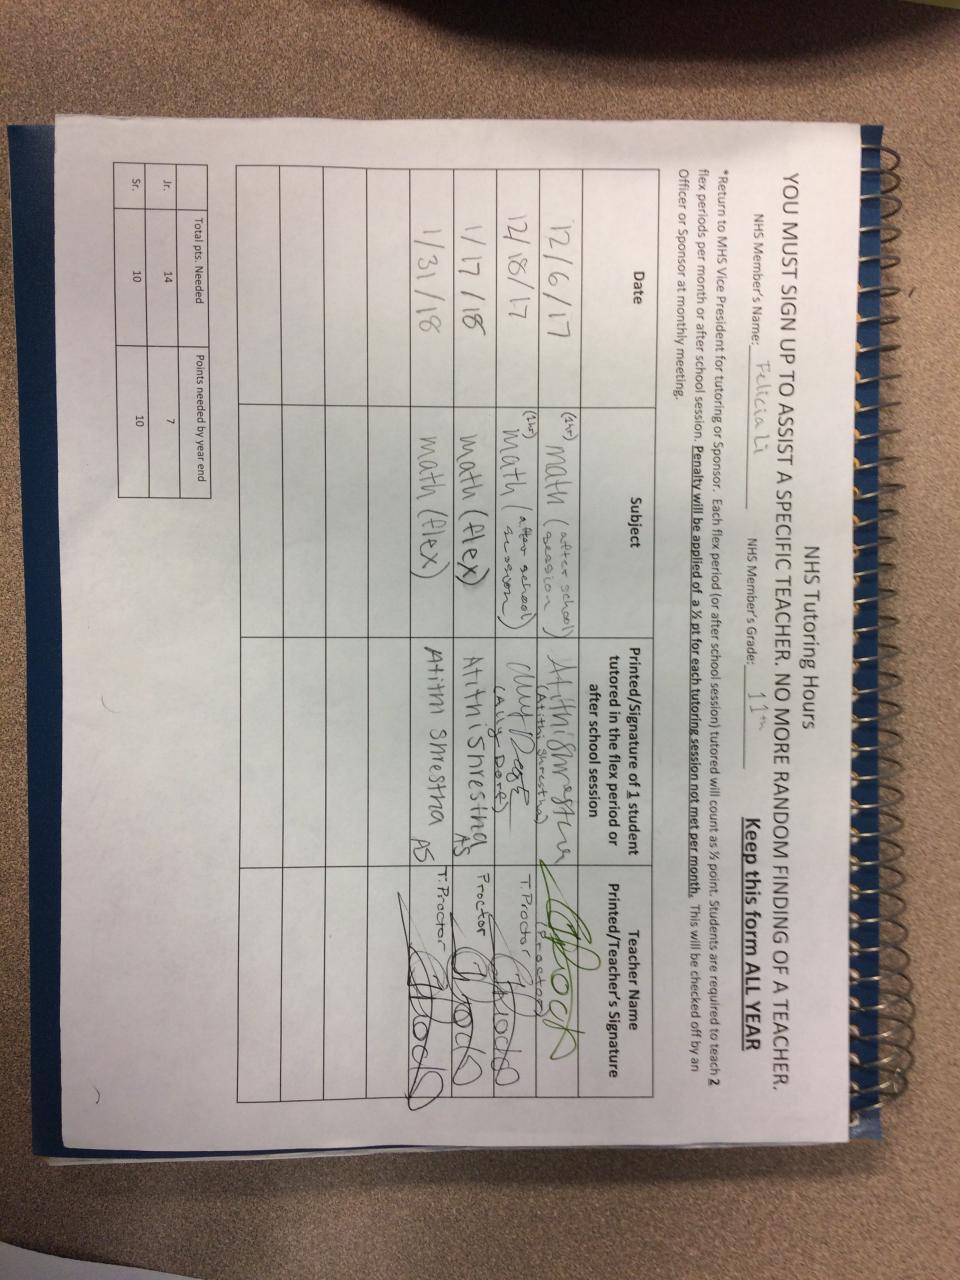 NHS Tutoring Hours
YOU MUST SIGN UP TO ASSIST A SPECIFIC TEACHER. NO MORE RANDOM FINDING OF A TEACHER.
NHS Member's Name: Felicia Li NHS Member's Grade: 11th Keep this form ALL YEAR
*Return to MHS Vice President for tutoring or Sponsor. Each flex period (or after school session) tutored will count as ½ point. Students are required to teach 2
flex periods per month or after school session. Penalty will be applied of a ½ pt for each tutoring session not met per month. This will be checked off by an
Officer or Sponsor at monthly meeting.
Date Subject Printed/Signature of 1 student tutored in the flex period or after school session Teacher Name Printed/Teacher's Signature
12/6/17 (1hr) math (after school session) Atithi Shrestha (Atithi Shrestha) (Proctor)
12/18/17 (1hr) math (after school session) (Ally Dorf) T. Proctor
1/17/18 math (flex) Atithi Shrestha AS Proctor
1/31/18 math (flex) Atithi Shrestha AS T. Proctor
Total pts. Needed Points needed by year end
Jr. 14 7
Sr. 10 10